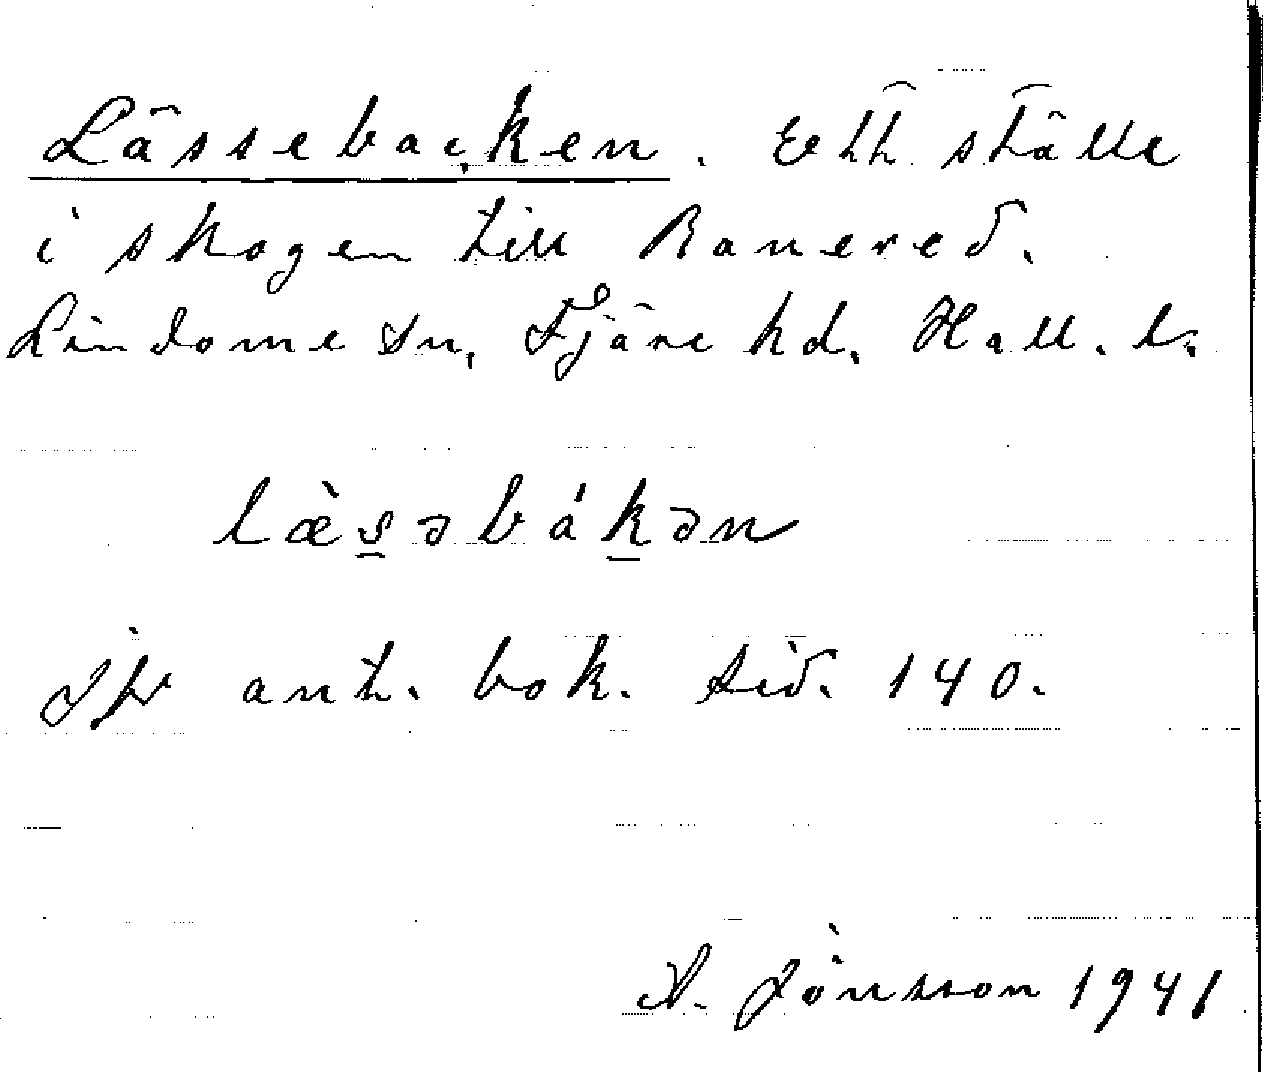 Lässebacken. Ett ställe
i skogen till Ranered.
Lindome sn, Fjäre hd. Hall. l.
læ̀s̲əbák̲ən
Jfr ant. bok. sid. 140.
A. Jönsson 1941